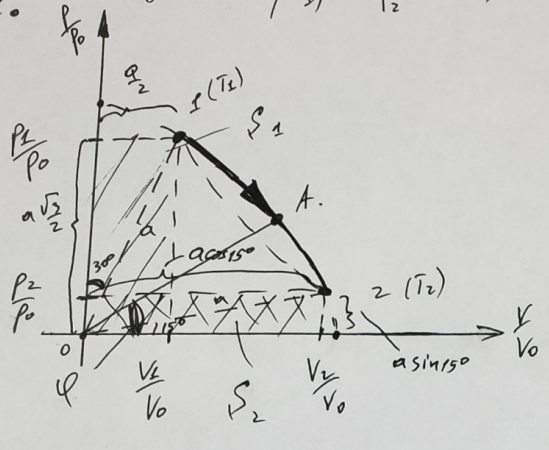 T₂
P/p₀
a/2
1 (T1)
S1
P1/p₀
a√3/2
A.
a
30°
a cos15°
P2/p₀
a
2 (T2)
15°
0
φ
V1/V₀
S2
V2/V₀
a sin15°
V/V₀